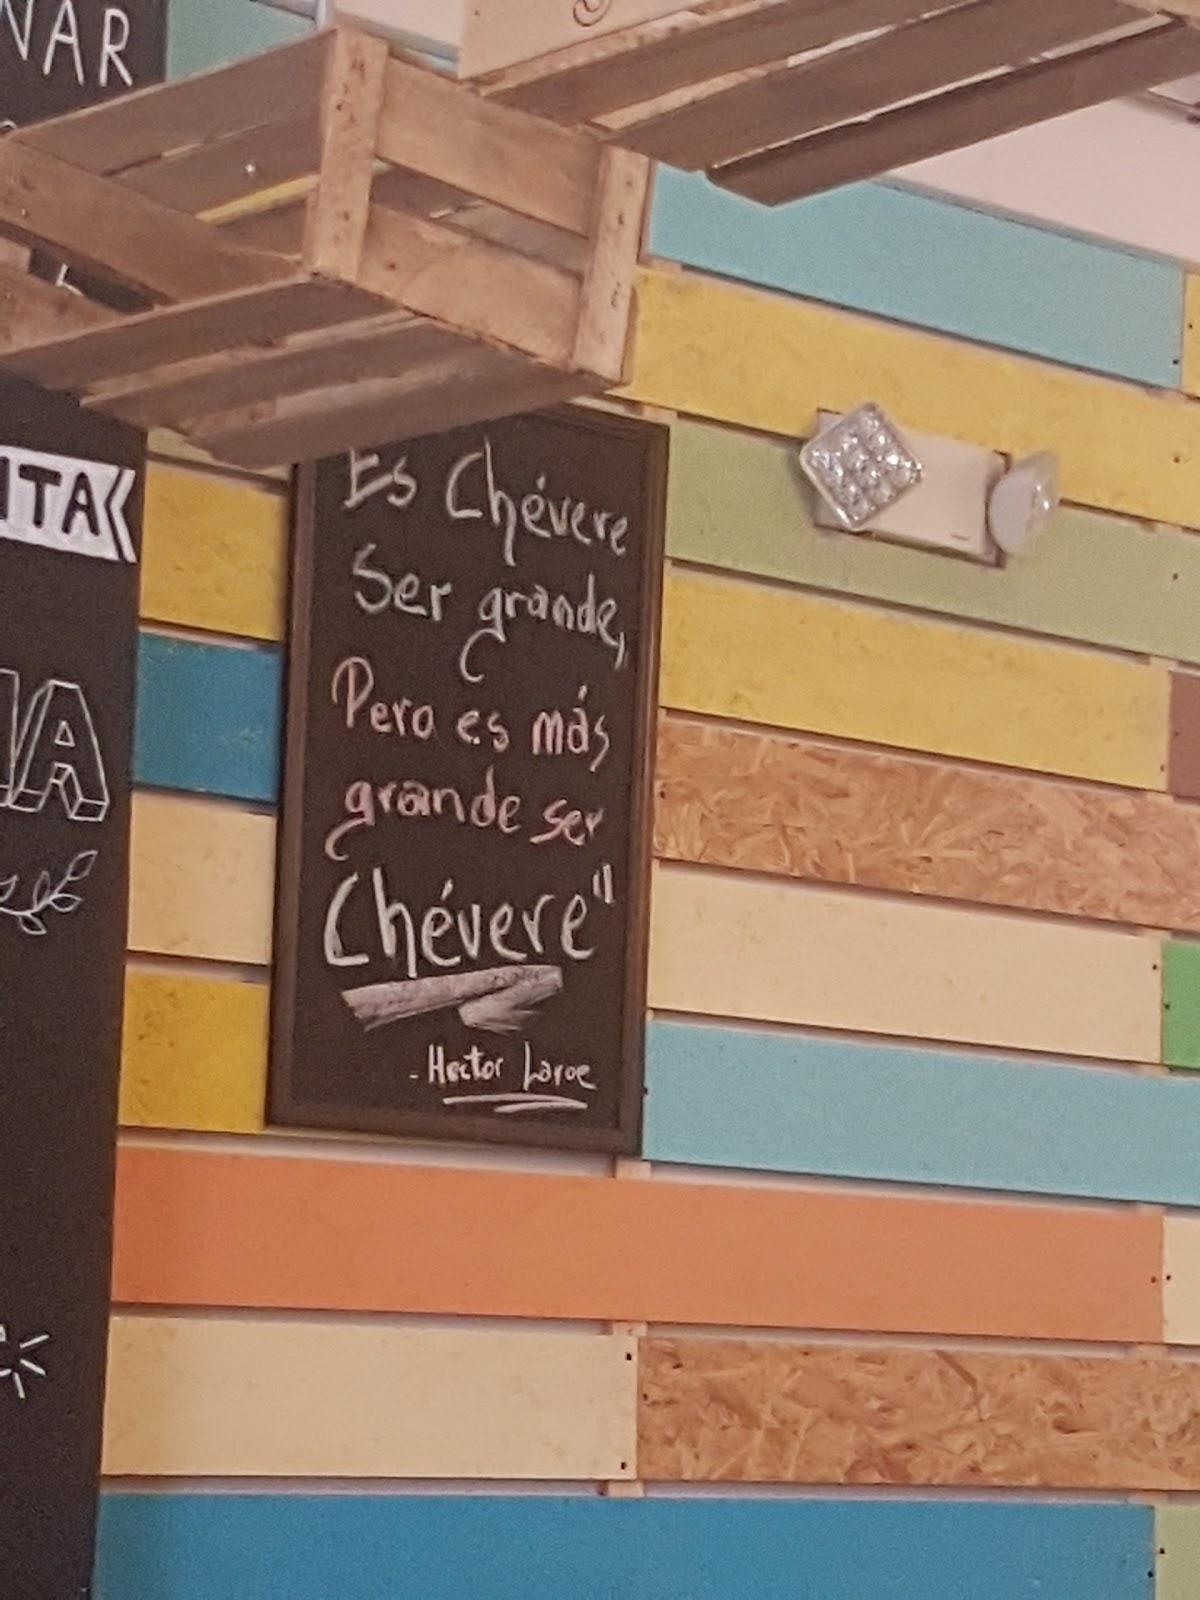 NAR
ITA
Es Chévere
Ser grande,
Pero es más
grande ser
Chévere"
- Hector Lavoe